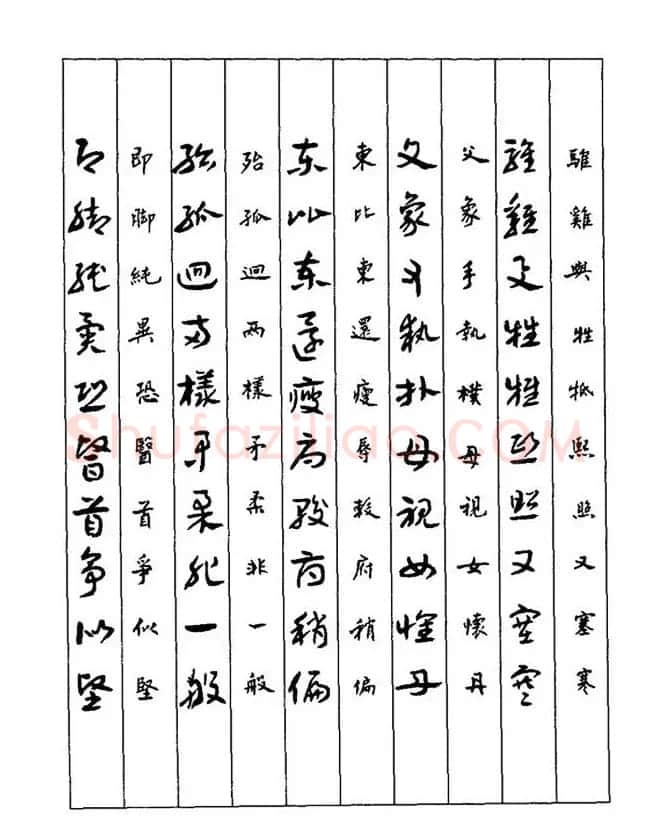 雞與牲熙照又塞寒
雞牲熙照又塞寒
父象手執樸母視女懷丹
父象手執母視女丹
東比東還瘦辱較府稍偏
东比东還瘦府稍偏
殆孤迴兩樣矛柔非一般
孤迴兩樣矛柔非一般
即腳純異恐醫首爭似堅
即腳純異恐醫首争似堅
Shufaziliao.COM